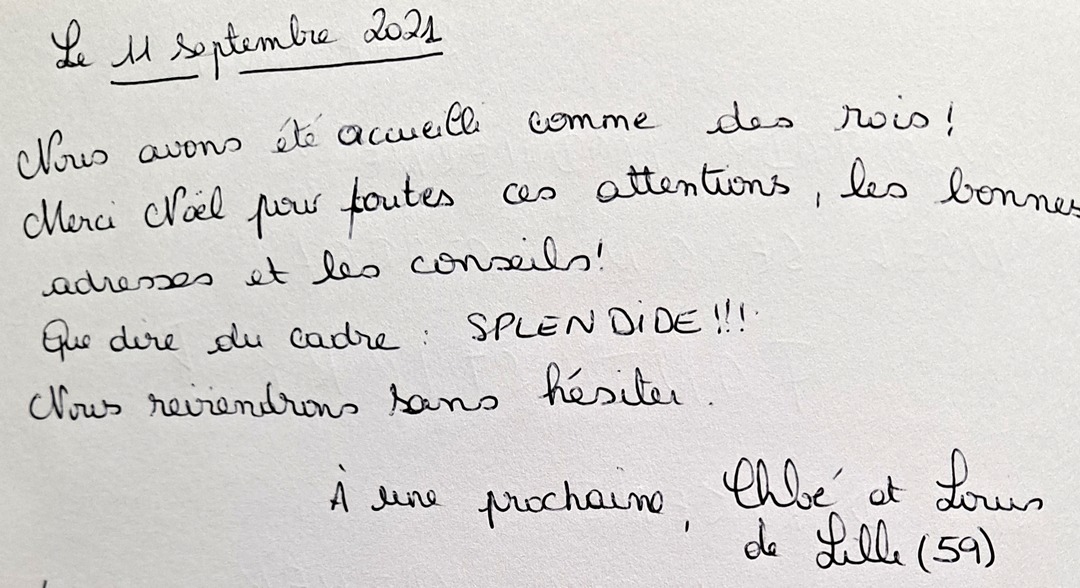 Le 11 septembre 2021
Nous avons été accueilli comme des rois !
Merci Noël pour toutes ces attentions, les bonnes
adresses et les conseils !
Que dire du cadre : SPLENDIDE !!!
Nous reviendrons sans hésiter.
À une prochaine, Chloé et Louis
de Lille (59)